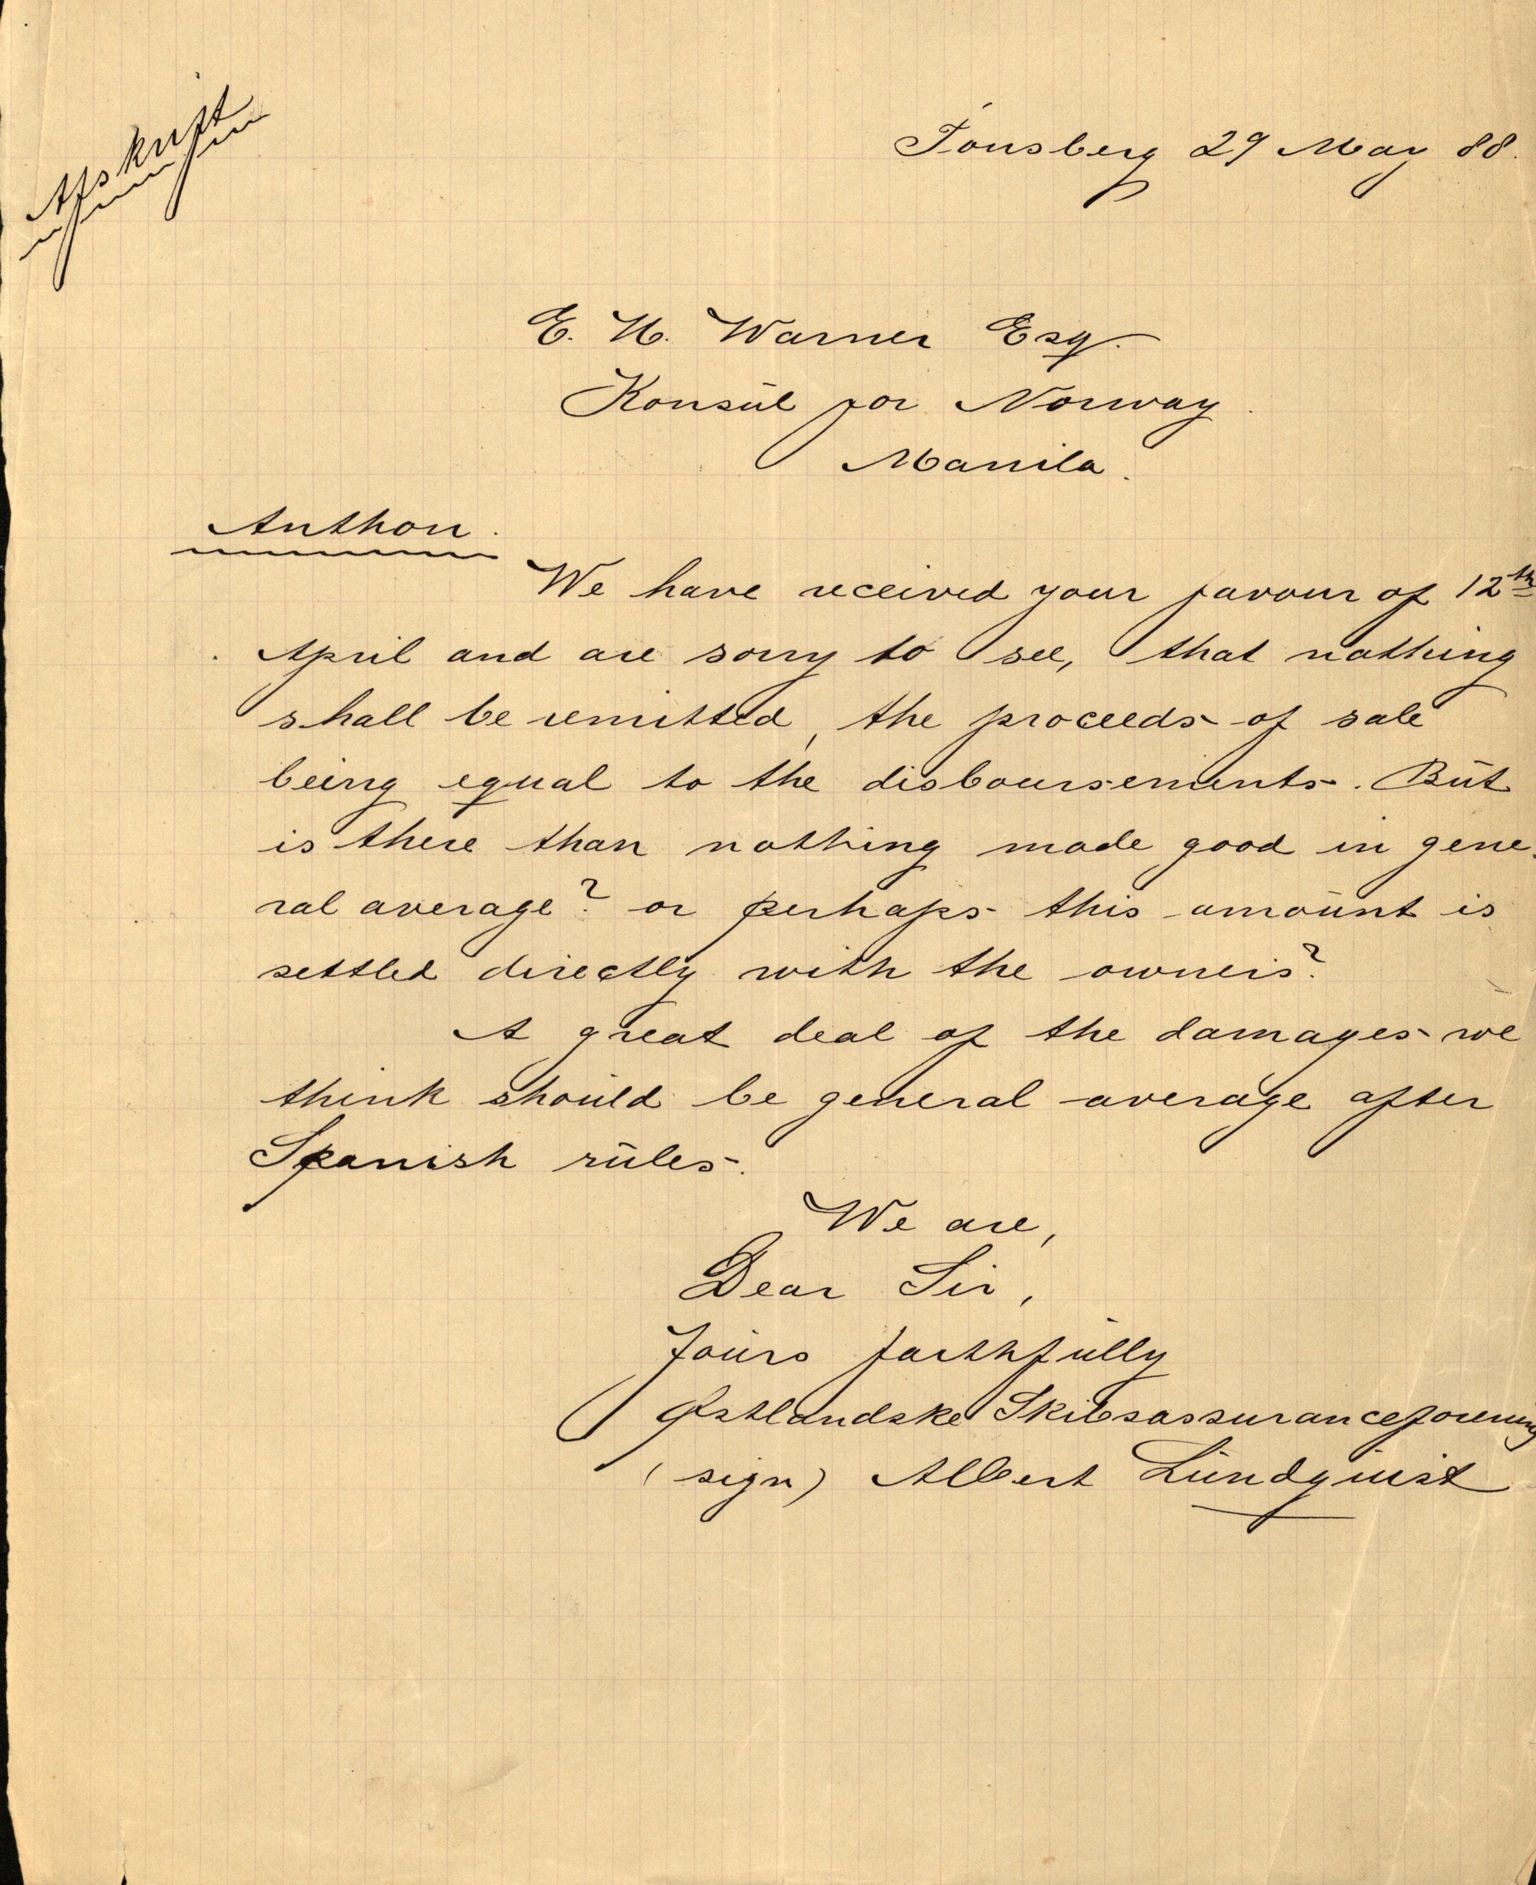 Afskrift
Tönsberg 29 May 88.
E. H. Warner Esq.
Konsul for Norway.
Manila.
Anthon.
We have received your favour of 12th
April and are sorry to see, that nothing
shall be remitted, the proceeds of sale
being equal to the disboursements. But
is there than nothing made good in gene-
ral average? or perhaps this amount is
settled directly with the owners?
A great deal of the damages we
think should be general average after
Spanish rules.
We are,
Dear Sir,
Yours faithfully
Østlandske Skibsassuranceforening
(sign) Albert Lundquist